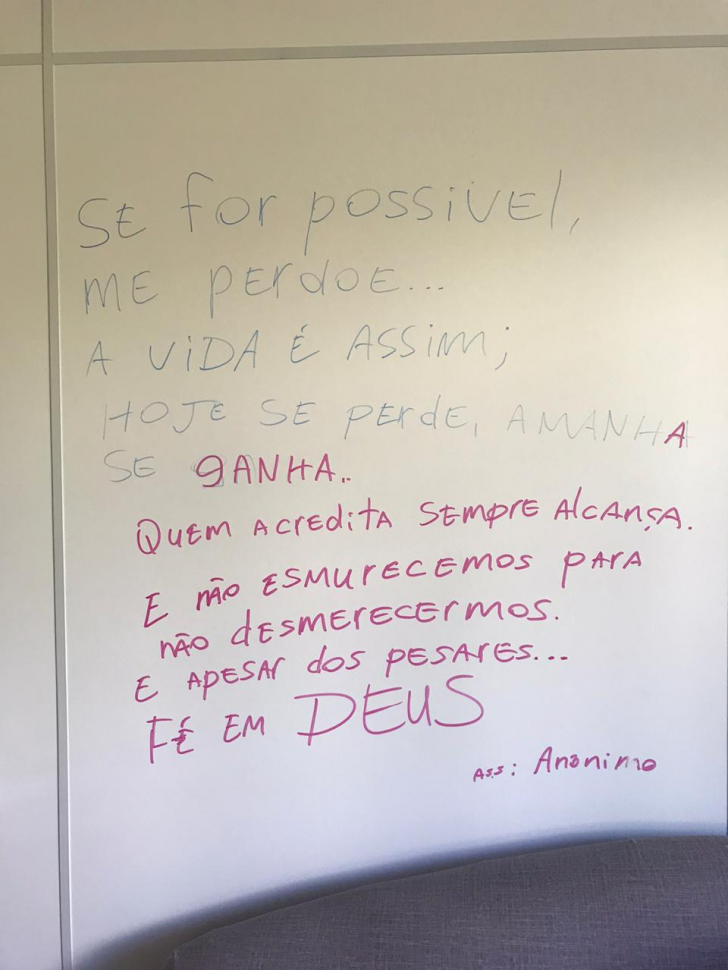 SE for possivel,
ME perdoE...
A ViDA É ASSim;
HOJE SE PErdE, AMANHA
SE gANHA..
QuEM AcrEditA SEMPrE AlcANçA.
E não ESMUrECEMOS pArA
não dESMErECErMOS.
E APESAr dos pESArES...
FÉ EM DEUS
Ass: Anônimo